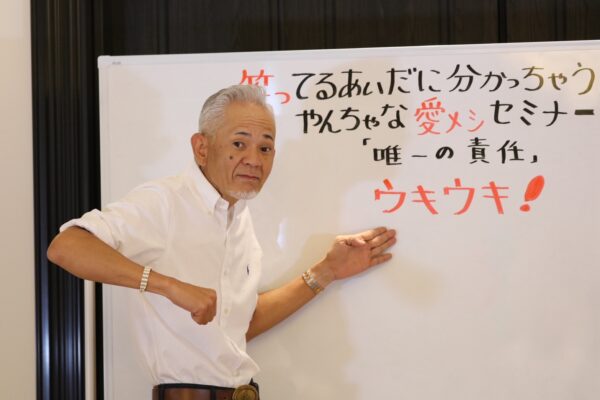 笑ってるあいだに分かっちゃう
やんちゃな愛メシセミナー
「唯一の責任」
ウキウキ!